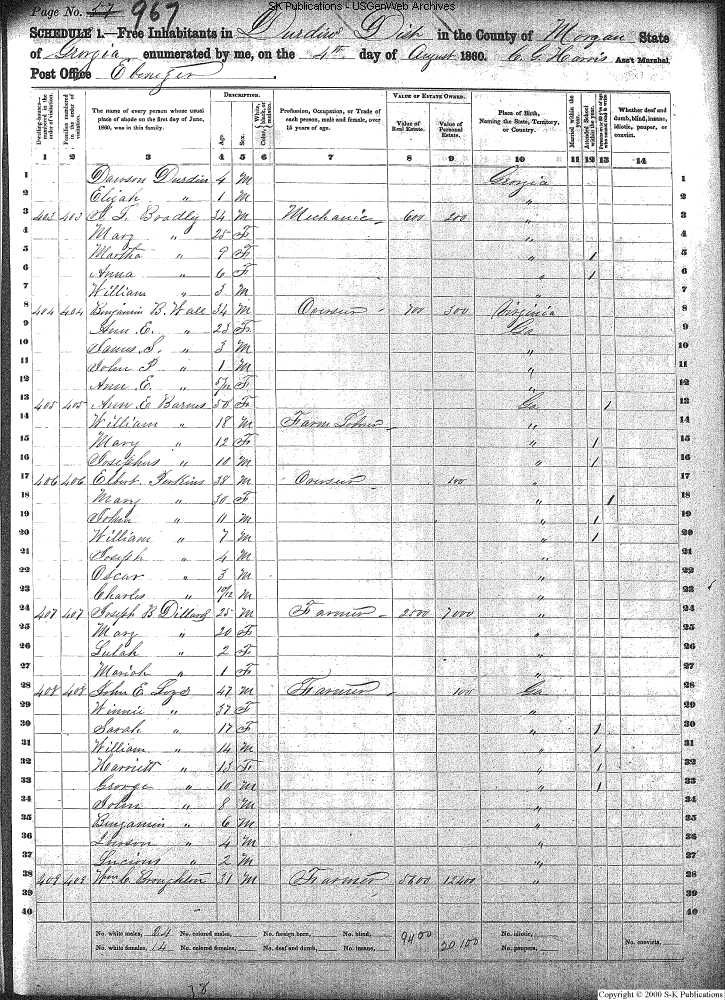 SK Publications - USGenWeb Archives
Page No. 57 967
SCHEDULE 1.—Free Inhabitants in Durdins Dist in the County of Morgan State
of Georgia enumerated by me, on the 4th day of August 1860. C. G. Harris Ass't Marshal.
Post Office Ebenezer.
Dwelling-houses—numbered in the order of visitation.
Families numbered in the order of visitation.
The name of every person whose usual place of abode on the first day of June, 1860, was in this family.
DESCRIPTION.
Age.
Sex.
Color, White, black, or mulatto.
Profession, Occupation, or Trade of each person, male and female, over 15 years of age.
VALUE OF ESTATE OWNED.
Value of Real Estate.
Value of Personal Estate.
Place of Birth, Naming the State, Territory, or Country.
Married within the year.
Attended School within the year.
Whether deaf and dumb, blind, insane, idiotic, pauper, or convict.
1 2 3 4 5 6 7 8 9 10 11 12 13 14
1 Dawson Durdin 4 M Georgia 1
2 Elijah " 1 M " 2
3 403 403 Boadly 34 M Mechanic 600 200 " 3
4 Mary " 25 F " 4
5 Martha " 9 F " / 5
6 Anna " 6 F " / 6
7 William " 3 M " 7
8 404 404 Benjamin B. Wall 34 M Overseer 700 300 Virginia 8
9 Ann E. " 23 F Ga 9
10 James S. " 3 M " 10
11 John P. " 1 M " 11
12 Ann E. " 5/12 F " 12
13 405 405 Ann E Barnes 50 F Ga / 13
14 William " 18 M Farm Labor " 14
15 Mary " 12 F " / 15
16 Josephus " 10 M " / 16
17 406 406 Elbert Perkins 38 M Overseer 100 " 17
18 Mary " 30 F " / 18
19 John " 11 M " / 19
20 William " 7 M " / 20
21 Joseph " 4 M " 21
22 Oscar " 3 M " 22
23 Charles " 10/12 M " 23
24 407 407 Joseph B Dillard 25 M Farmer 2500 7000 " 24
25 Mary " 20 F " 25
26 Lulah " 2 F " 26
27 Mariah " 1 F " 27
28 408 408 John E 47 M Farmer 100 Ga 28
29 Winnie " 37 F " 29
30 Sarah " 17 F " / 30
31 William " 14 M " / 31
32 Harriett " 13 F " / 32
33 George " 10 M " / 33
34 John " 8 M " 34
35 Benjamin " 6 M " 35
36 " 4 M " 36
37 Lucious " 2 M " 37
38 409 409 Wm C Broughton 31 M Farmer 5600 12400 " 38
39 39
40 40
No. white males, 24 No. colored males, No. foreign born, No. blind, 9400 20100 No. idiotic,
No. white females, 14 No. colored females, No. deaf and dumb, No. insane, No. paupers, No. convicts,
18
Copyright © 2000 S-K Publications